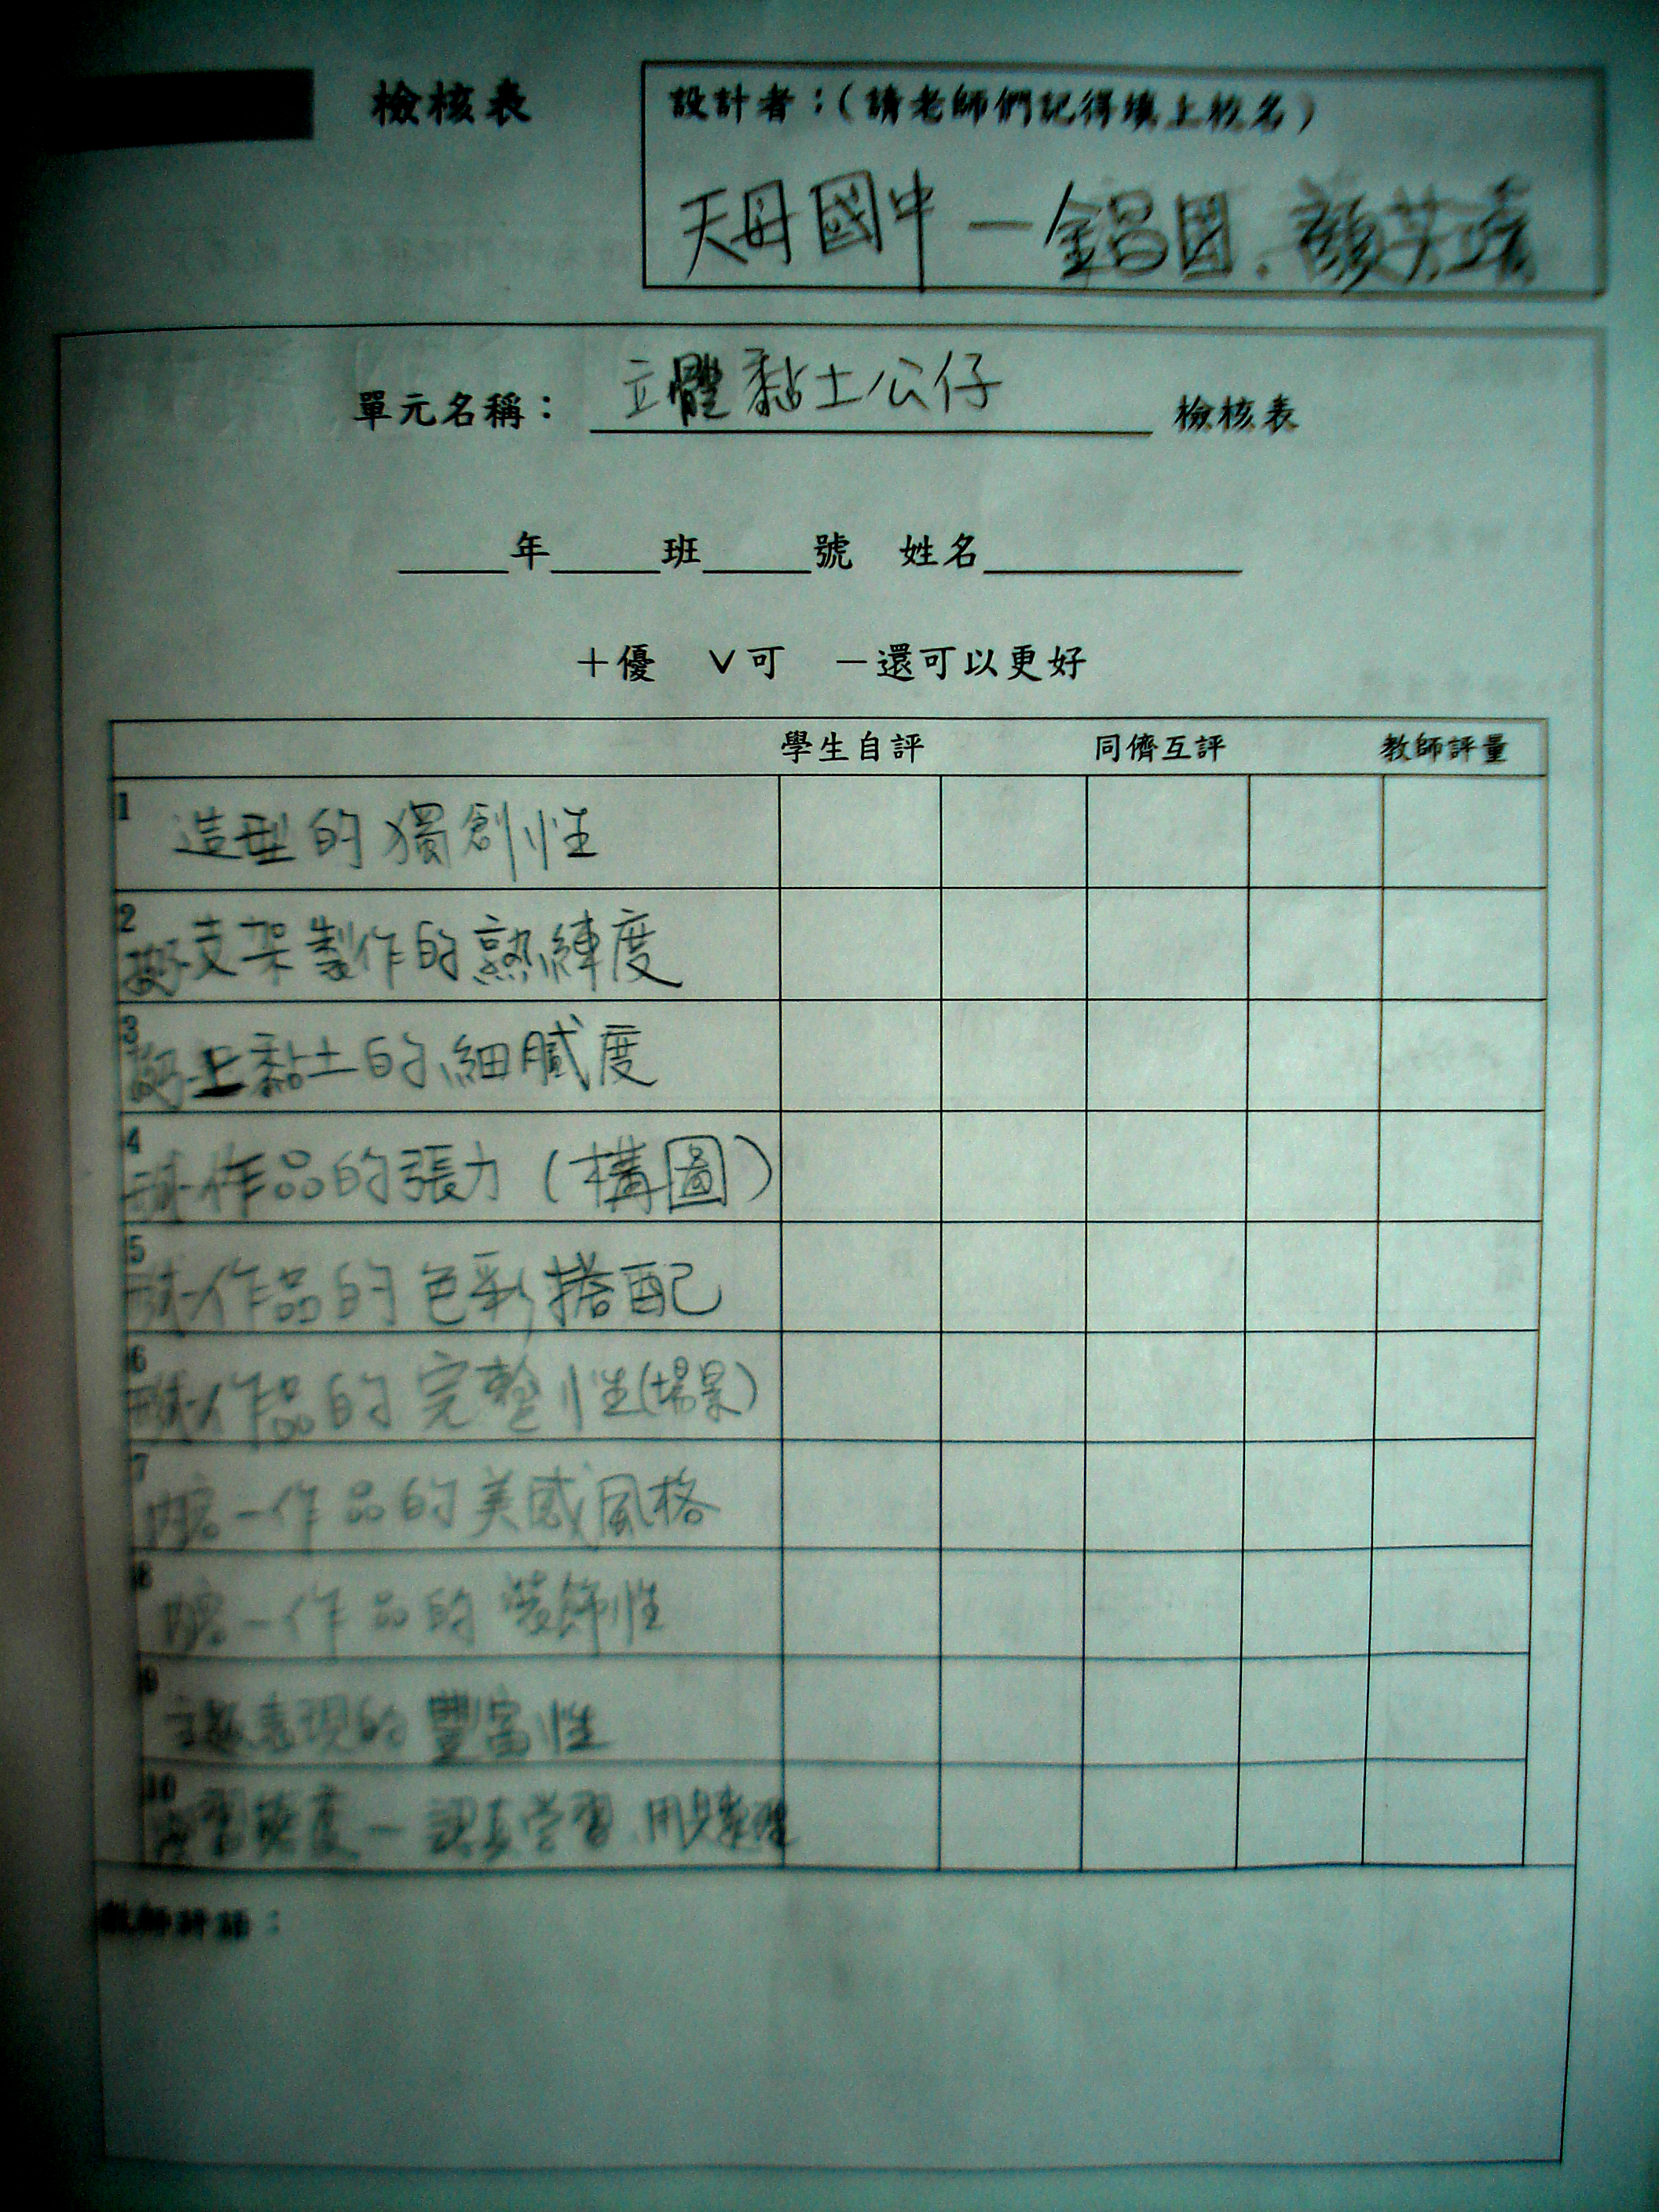 檢核表
設計者：(請老師們記得填上校名)
天母國中－
單元名稱：立體黏土公仔 檢核表
年 班 號 姓名
＋優 ∨可 －還可以更好
學生自評 同儕互評 教師評量
1 造型的獨創性
2 支架製作的熟練度
3 上黏土的細膩度
4 作品的張力（構圖）
5 作品的色彩搭配
6 作品的完整性(場景)
7 －作品的美感風格
8 －作品的裝飾性
9 主題表現的豐富性
10 學習態度－認真學習
教師評語：